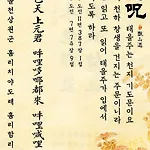 呪
태을주는 천지 기도문이요
천하 창생을 건지는 주문이니라
읽고 또 읽어 태을주가 입에서
도록 하라
乙天 上元君 吽哩哆㖿都來 吽哩喊哩
을천상원군 훔리치야도래 훔리함리